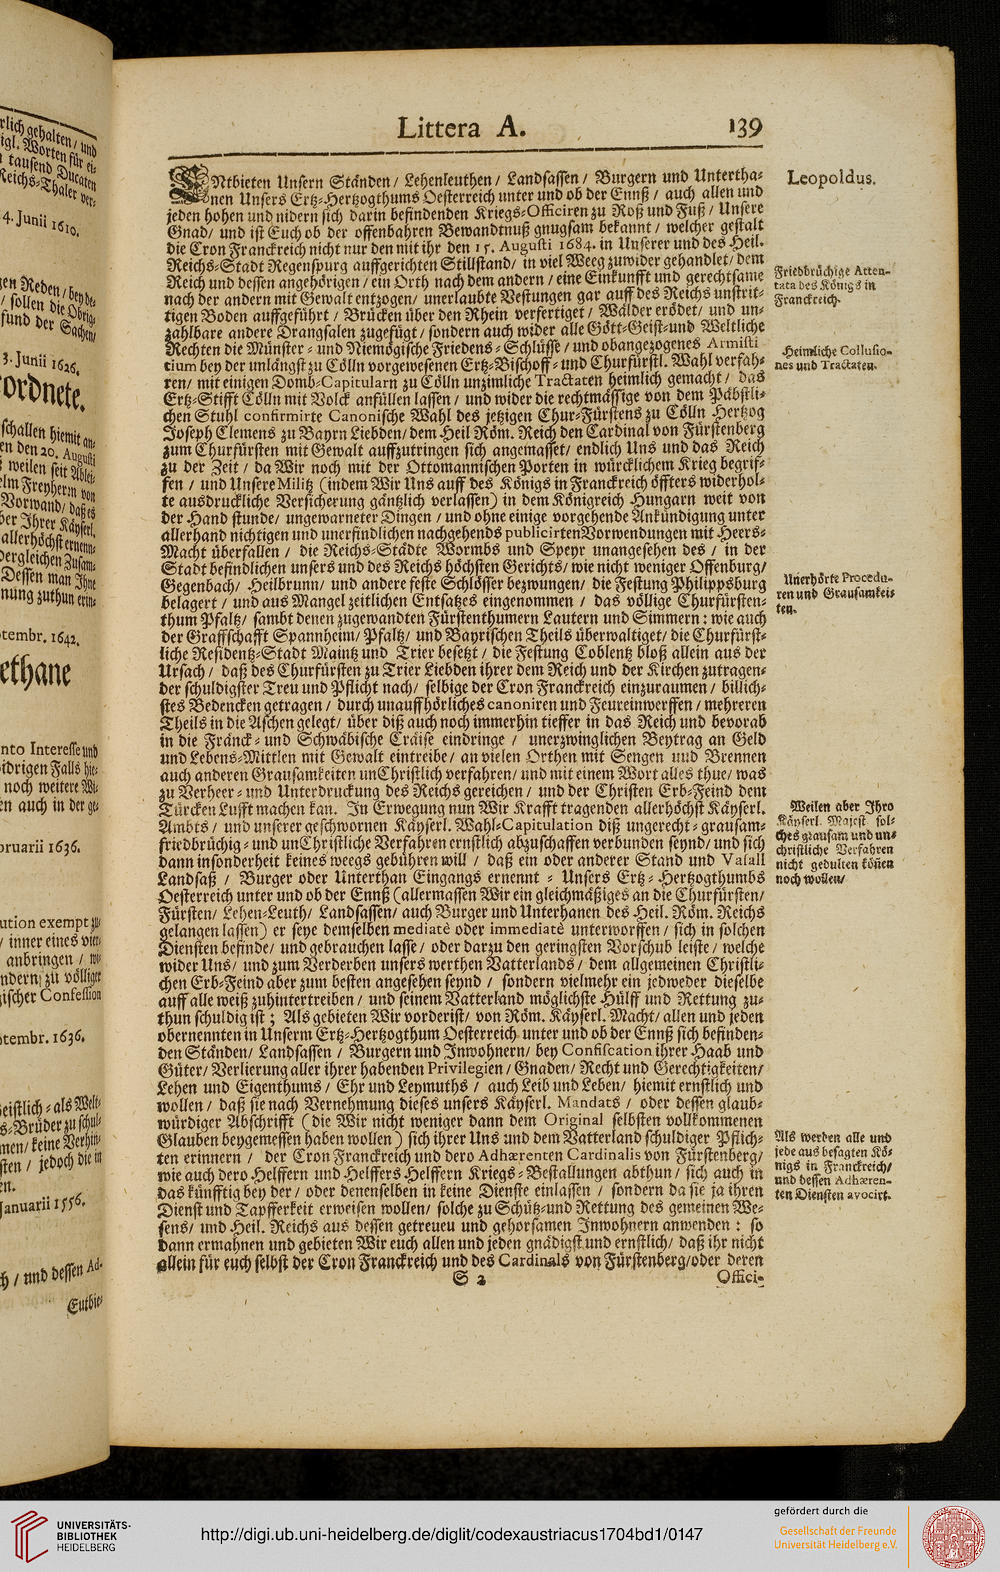 Littera A. 139
ENtbieten Unsern Ständen / Lehenleuthen / Landsassen / Burgern und Unterthanen
nen Unsers Ertz-Hertzogthums Oesterreich unter und ob der Ennß / auch allen und
jeden hohen und nidern sich darin befindenden Kriegs-Officiren zu Roß und Fuß / Unsere
Gnad / und ist Euch ob der offenbahren Bewandtnuß gnugsam bekannt / welcher gestalt
die Cron Franckreich nicht nur den mit ihr den 15. Augusti 1684. in Unserer und des Heil.
Reichs-Stadt Regenspurg auffgerichten Stillstand / in viel Weeg zuwider gehandlet / dem
Reich und dessen angehörigen / ein Orth nach dem andern / eine Einkunfft und gerechtsame
nach der andern mit Gewalt entzogen / unerlaubte Vestungen gar auff des Reichs unstrit-
tigen Boden auffgeführt / Brücken über den Rhein verfertiget / Wälder erödet / und un-
zahlbare andere Drangsalen zugefügt / sondern auch wider alle Gött-Geist-und Weltliche
Rechten die Münster- und Niemögische Friedens-Schlüsse / und obangezogenes Armisti
tium bey der unlängst zu Cölln vorgewesenen Ertz-Bischoff- und Churfürstl. Wahl verfah-
ren / mit einigen Domb-Capitularn zu Cölln unzimliche Tractaten heimlich gemacht / das
Ertz-Stifft Cölln mit Volck anfüllen lassen / und wider die rechtmässige von dem Päbstli-
chen Stuhl confirmirte Canonische Wahl des jetzigen Chur-Fürstens zu Cölln Hertzog
Joseph Clemens zu Bayrn Liebden / dem Heil Röm. Reich den Cardinal von Fürstenberg
zum Churfürsten mit Gewalt auffzutringen sich angemasset / endlich Uns und das Reich
zu der Zeit / da Wir noch mit der Ottomannischen Porten in würcklichem Krieg begrif-
fen / und Unsere Militz (indem Wir Uns auff des Königs in Franckreich öffters widerhol-
te ausdruckliche Versicherung gäntzlich verlassen) in dem Königreich Hungarn weit von
der Hand stunde / ungewarneter Dingen / und ohne einige vorgehende Ankündigung unter
allerhand nichtigen und unerfindlichen nachgehends publicirten Vorwendungen mit Heers-
Macht überfallen / die Reichs-Städte Wormbs und Speyr unangesehen des / in der
Stadt befindlichen unsers und des Reichs höchsten Gerichts / wie nicht weniger Offenburg /
Gegenbach / Heilbrunn / und andere feste Schlösser bezwungen / die Festung Philippsburg
belagert / und aus Mangel zeitlichen Entsatzes eingenommen / das völlige Churfürsten-
thum Pfaltz / sambt denen zugewandten Fürstenthumern Lautern und Simmern : wie auch
der Graffschafft Spannheim / Pfaltz / und Bayrischen Theils überwaltiget / die Churfürst-
liche Residentz-Stadt Maintz und Trier besetzt / die Festung Coblentz bloß allein aus der
Ursach / daß des Churfürsten zu Trier Liebden ihrer dem Reich und der Kirchen zutragen-
der schuldigster Treu und Pflicht nach / selbige der Cron Franckreich einzuraumen / billich-
stes Bedencken getragen / durch unauffhörliches canoniren und Feureinwerffen / mehreren
Theils in die Aschen gelegt / über diß auch noch immerhin tieffer in das Reich und bevorab
in die Fränck- und Schwäbische Cräise eindringe / unerzwinglichen Beytrag an Geld
und Lebens-Mittlen mit Gewalt eintreibe / an vielen Orthen mit Sengen und Brennen
auch anderen Grausamkeiten unChristlich verfahren / und mit einem Wort alles thue / was
zu Verheer- und Unterdruckung des Reichs gereichen / und der Christen Erb-Feind dem
Türcken Lufft machen kan. In Erwegung nun Wir Krafft tragenden allerhöchst Käyserl.
Ambts / und unserer geschwornen Käyserl. Wahl-Capitulation diß ungerecht-grausam-
friedbrüchig- und unChristliche Verfahren ernstlich abzuschaffen verbunden seynd / und sich
dann insonderheit keines weegs gebühren will / daß ein oder anderer Stand und Vasall
Landsaß / Burger oder Unterthan Eingangs ernennt- Unsers Ertz-Hertzogthumbs
Oesterreich unter und ob der Ennß (allermassen Wir ein gleichmäßiges an die Churfürsten /
Fürsten / Lehen-Leuth / Landsassen / auch Burger und Unterhanen des Heil. Röm. Reichs
gelangen lassen) er seye demselben mediatè oder immediatè unterworffen / sich in solchen
Diensten befinde / und gebrauchen lasse / oder darzu den geringsten Vorschub leiste / welche
wider Uns / und zum Verderben unsers werthen Vatterlands / dem allgemeinen Christli-
chen Erb-Feind aber zum besten angesehen seynd / sondern vielmehr ein jedweder dieselbe
auff alle weiß zuhintertreiben / und seinem Vatterland möglichste Hülff und Rettung zu-
thun schuldig ist ; Als gebieten Wir vorderist / von Röm. Käyserl. Macht / allen und jeden
obernennten in Unserm Ertz-Hertzogthum Oesterreich unter und ob der Ennß sich befinden-
den Ständen / Landsassen / Burgern und Inwohnern / bey Confiscation ihrer Haab und
Güter / Verlierung aller ihrer habenden Privilegien / Gnaden / Recht und Gerechtigkeiten /
Lehen und Eigenthums / Ehr und Leymuths / auch Leib und Leben / hiemit ernstlich und
wollen / daß sie nach Vernehmung dieses unsers Käyserl. Mandats / oder dessen glaub-
würdiger Abschrifft (die Wir nicht weniger dann dem Original selbsten vollkommenen
Glauben beygemessen haben wollen) sich ihrer Uns und dem Vatterland schuldiger Pflich-
ten erinnern / der Cron Franckreich und dero Adhærenten Cardinalis von Fürstenberg /
wie auch dero Helffern und Helffers Helffern Kriegs-Bestallungen abthun / sich auch in
das künfftig bey der / oder denenselben in keine Dienste einlassen / sondern da sie ja ihren
Dienst und Tapfferkeit erweisen wollen / solche zu Schütz-und Rettung des gemeinen We-
sens / und Heil. Reichs aus dessen getreuen und gehorsamen Inwohnern anwenden : so
dann ermahnen und gebieten Wir euch allen und jeden gnädigst und ernstlich / daß ihr nicht
allein für euch selbst der Cron Franckreich und des Cardinals von Fürstenberg / oder deren
S 2 Offici-
Leopoldus.
Friedbrüchige Atten-
tata des Königs in
Franckreich.
Heimliche Collusio-
nes und Tractaten.
Unerhörte Procedu-
ren und Grausamkei-
ten.
Weilen aber Ihro
Käyserl. Majest sol-
ches grausam und un-
christliche Verfahren
nicht gedulten können
noch wollen /
Als werden alle und
jede aus besagten Kö-
nigs in Franckreich /
und dessen Adhæren-
ten Diensten avocirt.
rlich gehalten / und
igl. Worten für ei-
tausend Ducaten
Reichs-Thaler ver-
4. Junii 1610.
en Reden / bey de-
/ sollen die Obrig-
fund der Sachen /
3. Junii 1626.
ordnete.
schallen hiemit an-
en den 20. Augusti
weilen seit Ablei-
elm Freyherrn von
Vorwand / daß es
er Ihrer Käyserl.
allerhöchst ernenn-
dergleichen Zusam-
Dessen man Ihne
nung zuthun erin-
tembr. 1642.
ethane
nto Interesse und
idrigen Falls hie-
noch weitere Wi-
en auch in der ge-
bruarii 1636.
ution exempt zu-
/ inner eines vier-
anbringen / wi-
ndern / zu völliger
ischer Confession
tembr. 1636.
eistlich- als Welt-
s-Brüder zu schul-
men / keine Verhin-
sten / jedoch die in
en.
Januarii 1556.
ch / und dessen Ad-
Entbie-
UNIVERSITÄTS-
BIBLIOTHEK
HEIDELBERG
http://digi.ub.uni-heidelberg.de/diglit/codexaustriacus1704bd1/0147
gefördert durch die
Gesellschaft der Freunde
Universität Heidelberg e.V.